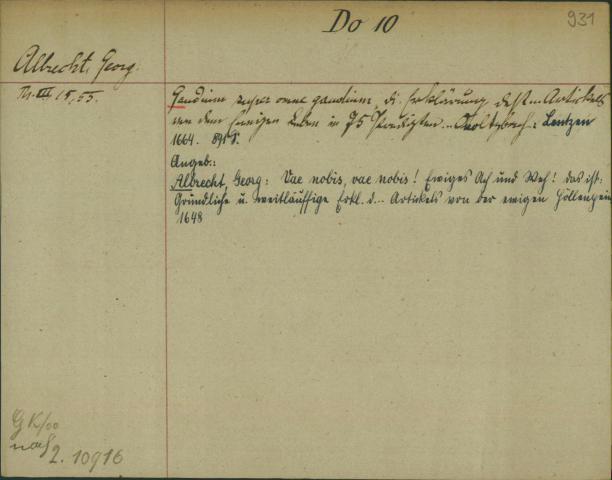 Do 10
931
Albrecht, Georg.
Th. III, 15, 55.
Gaudium super omne gaudium, d.i. Erklärung des ... Artickels
von dem Ewigen Leben in 75 Predigten ... : Lentzen
1664. 891 S.
Angeb.:
Albrecht, Georg: Vae nobis, vae nobis! Ewiges Ach und Weh! das ist:
Gründliche u. weitläuffige Erkl. d... Artickels von der ewigen Höllenpein
1648
G K/00
nach
2. 10916